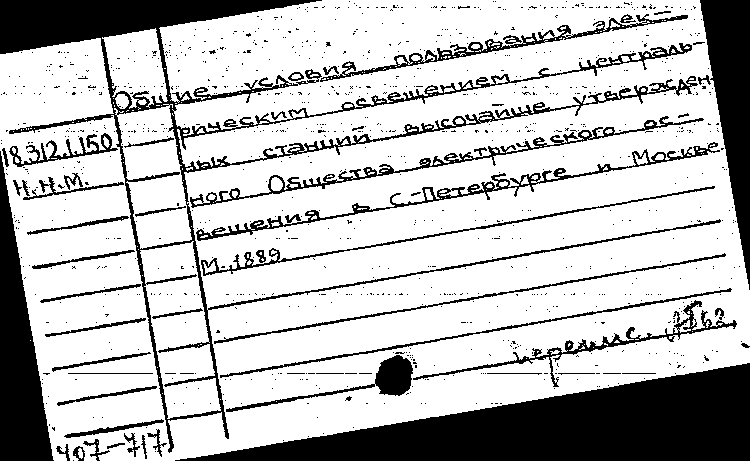 Общие условия пользования элек-
18.312.1.150. трическим освещением с централь-
Н.Н.М. ных станций высочайше утвержден
ного Общества электрического ос-
вещения в С.-Петербурге и Москве
М., 1889.
407-717